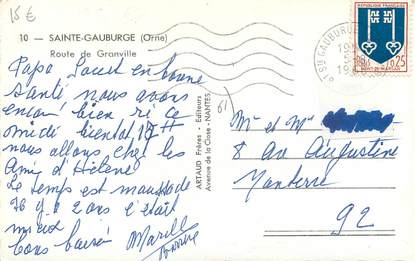 15€
10 - SAINTE-GAUBURGE (Orne)
Route de Granville
Papa, Jacset en bonne
santé, nous avons
encor bien ri ce
midi bientot 17H
nous allons chez les
Ami d'Hélène
Le temps est maussade
y 2 ans c'était
mieux
bons baisers
61
ARTAUD Frères - Editeurs
Avenue de la Close - NANTES
REPUBLIQUE FRANCAISE
0,25
MONT-DE-MARSAN
GAUBURGE
Mr et Mme
8 Av Augustine
Nanterre
92